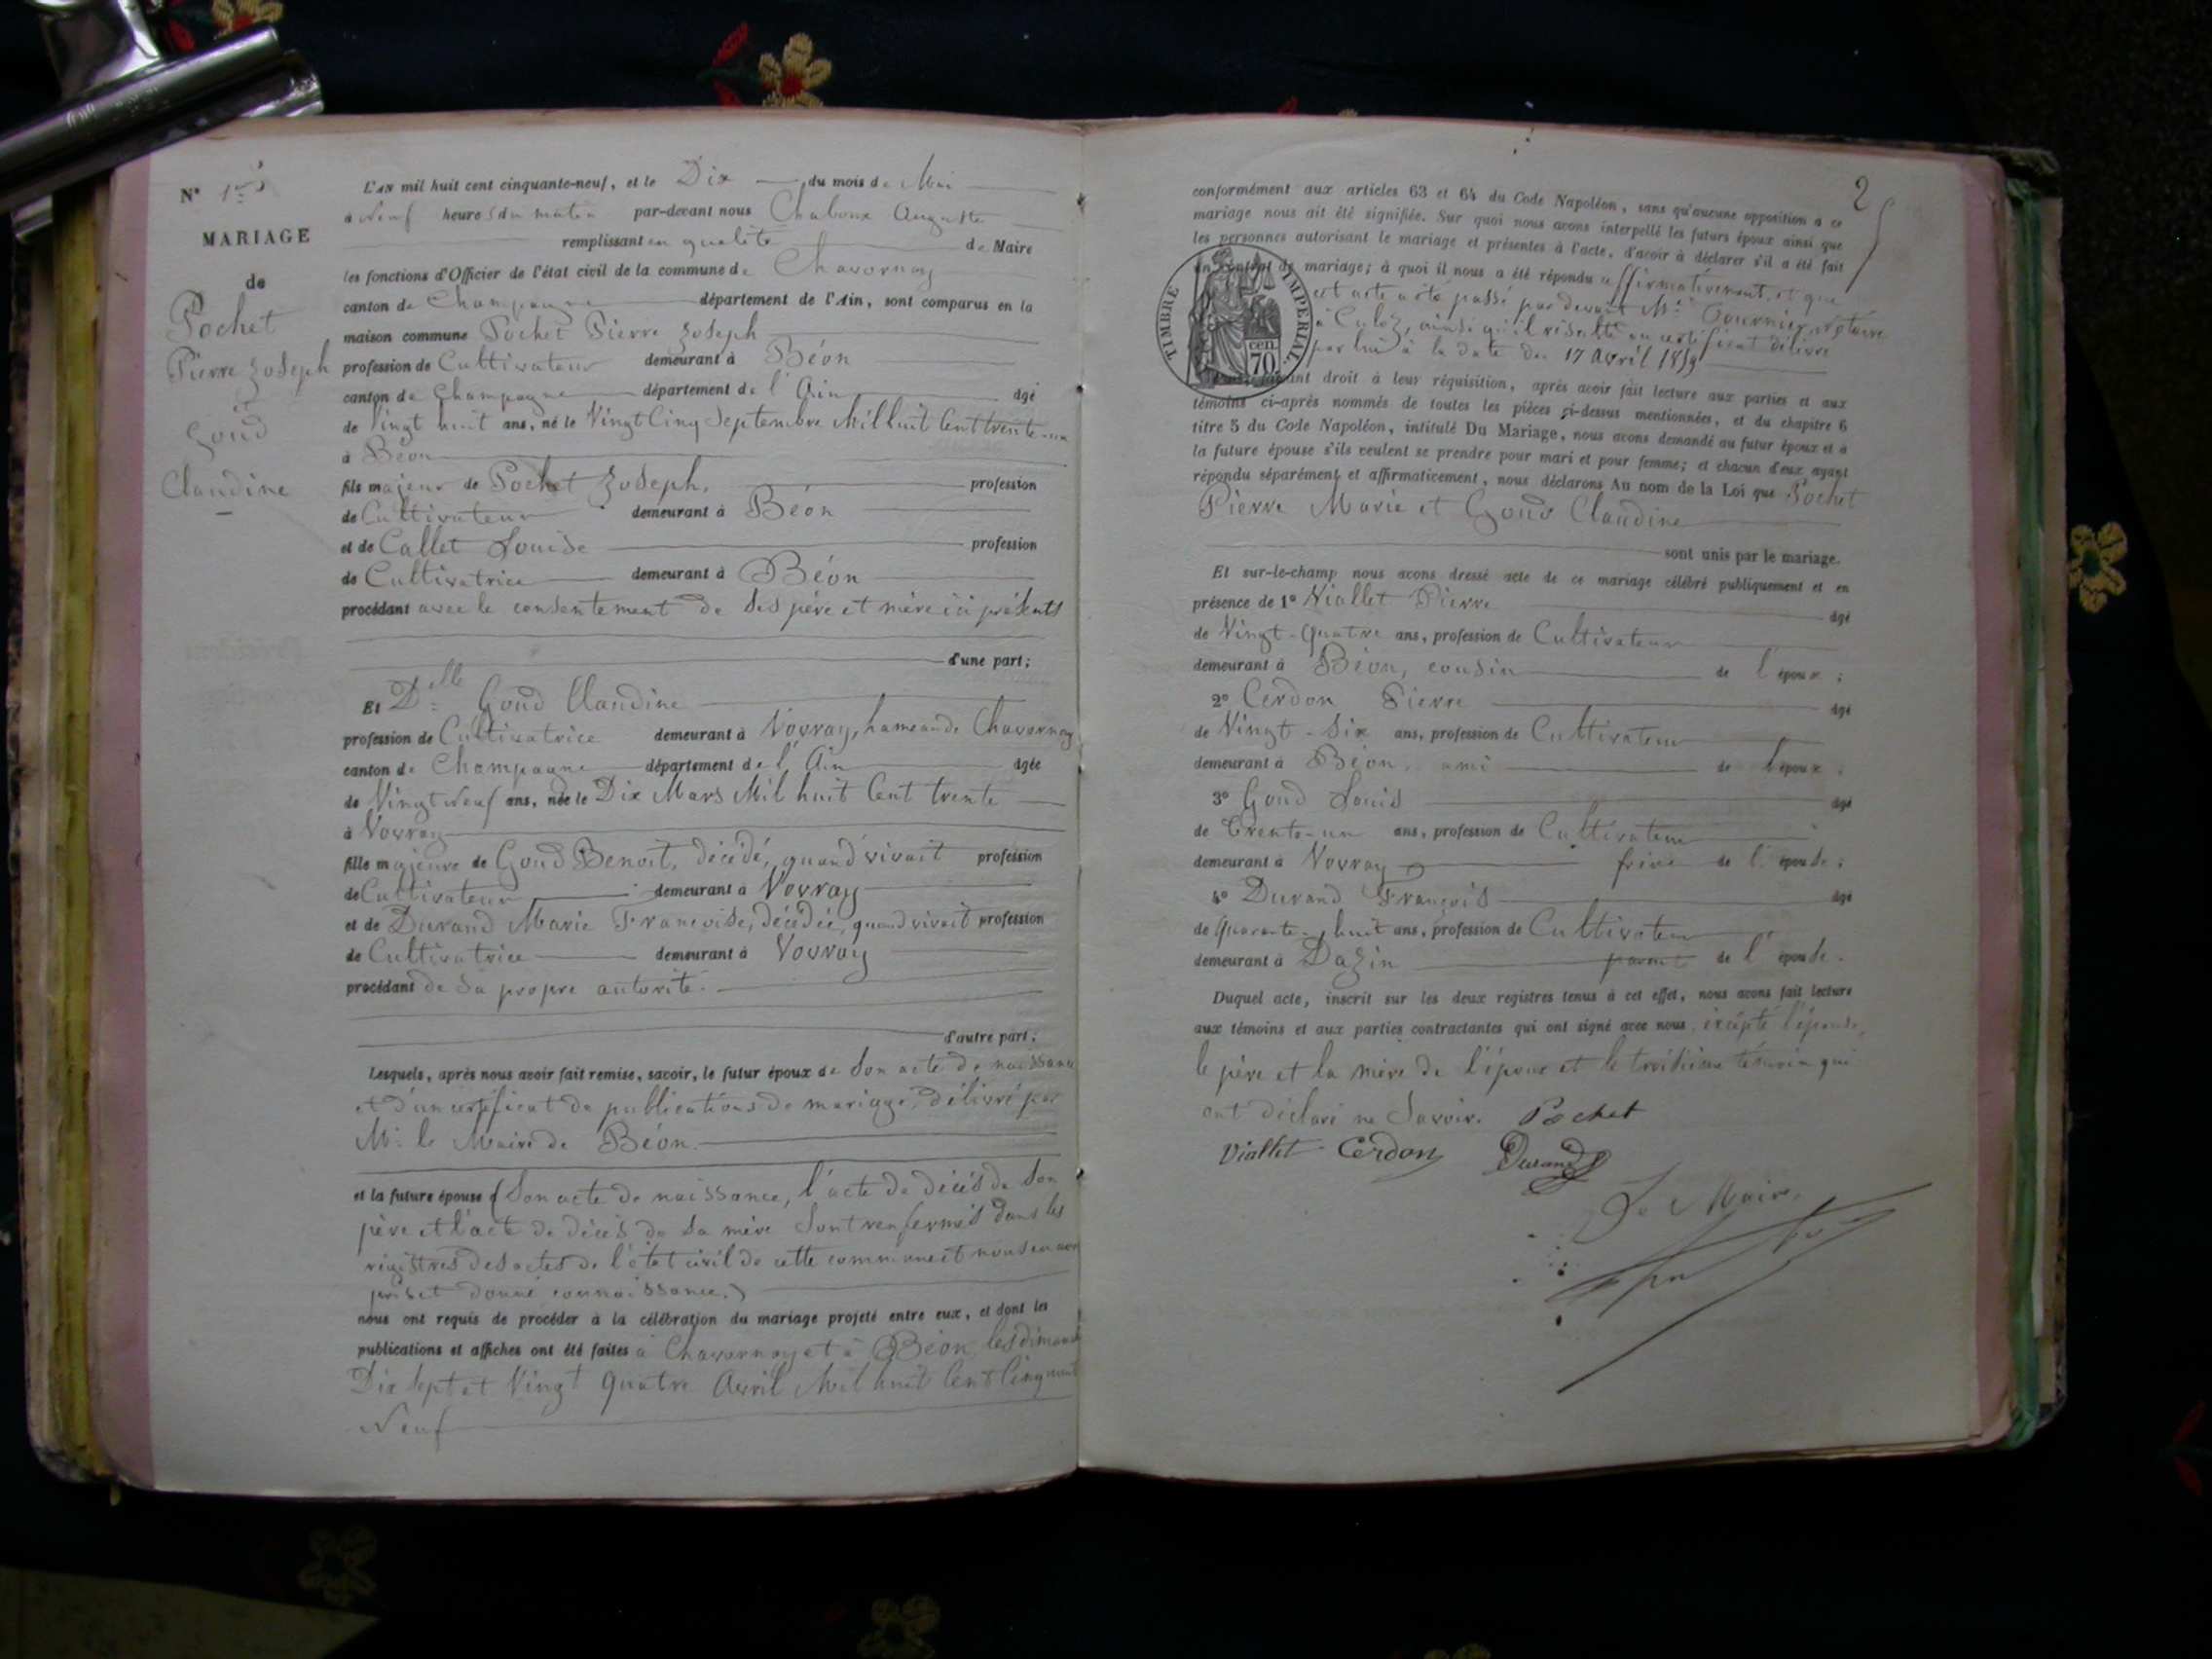 N° 1er
MARIAGE
de
Pochet
Pierre Joseph
et
Goud
Claudine
L'AN mil huit cent cinquante-neuf, et le Dix du mois de Mai
à Neuf heures du matin par-devant nous Chaboux Auguste
remplissant en qualité de Maire
les fonctions d'Officier de l'état civil de la commune de Chavornay
canton de Champagne département de l'Ain, sont comparus en la
maison commune Pochet Pierre Joseph
profession de Cultivateur demeurant à Béon
canton de Champagne département de l'Ain âgé
de Vingt huit ans, né le Vingt Cinq Septembre Mil huit Cent trente-un
à Béon
fils majeur de Pochet Joseph, profession
de Cultivateur demeurant à Béon
et de Callet Louise profession
de Cultivatrice demeurant à Béon
procédant avec le consentement de ses père et mère ici présents
d'une part;
Et Delle Goud Claudine
profession de Cultivatrice demeurant à Vovray, hameau de Chavornay
canton de Champagne département de l'Ain âgée
de Vingt Neuf ans, née le Dix Mars Mil huit Cent trente
à Vovray
fille majeure de Goud Benoit, décédé, quand vivait profession
de Cultivateur demeurant à Vovray
et de Durand Marie Françoise, décédée, quand vivait profession
de Cultivatrice demeurant à Vovray
procédant de sa propre autorité.
d'autre part;
Lesquels, après nous avoir fait remise, savoir, le futur époux de Son acte de naissance
et d'un certificat de publications de mariage, délivré par
Mr. le Maire de Béon.
et la future épouse (Son acte de naissance, l'acte de décès de Son
père et l'acte de décès de Sa mère Sont renfermés dans les
régistres des actes de l'état civil de cette commune et nous en avons
pris et donné connaissance.)
nous ont requis de procéder à la célébration du mariage projeté entre eux, et dont les
publications et affiches ont été faites à Chavornay et à Béon, les dimanches
Dix Sept et Vingt Quatre Avril Mil huit Cent Cinquante
Neuf
2
conformément aux articles 63 et 64 du Code Napoléon, sans qu'aucune opposition à ce
mariage nous ait été signifiée. Sur quoi nous avons interpellé les futurs époux ainsi que
les personnes autorisant le mariage et présentes à l'acte, d'avoir à déclarer s'il a été fait
un contrat de mariage; à quoi il nous a été répondu affirmativement, et que
cet acte a été passé par devant Me Tournier, notaire
à Culoz, ainsi qu'il résulte du certificat délivré
par lui à la date du 17 Avril 1859
TIMBRE IMPERIAL
70 cen.
droit à leur réquisition, après avoir fait lecture aux parties et aux
témoins ci-après nommés de toutes les pièces ci-dessus mentionnées, et du chapitre 6
titre 5 du Code Napoléon, intitulé Du Mariage, nous avons demandé au futur époux et à
la future épouse s'ils veulent se prendre pour mari et pour femme; et chacun d'eux ayant
répondu séparément et affirmativement, nous déclarons Au nom de la Loi que Pochet
Pierre Marie et Goud Claudine
sont unis par le mariage.
Et sur-le-champ nous avons dressé acte de ce mariage célébré publiquement et en
présence de 1° Viallet Pierre âgé
de Vingt-Quatre ans, profession de Cultivateur
demeurant à Béon, cousin de l'époux;
2° Cerdon Pierre âgé
de Vingt-Six ans, profession de Cultivateur
demeurant à Béon, ami de l'époux;
3° Goud Louis âgé
de Trente-un ans, profession de Cultivateur
demeurant à Vovray frère de l'épouse;
4° Durand François âgé
de Quarante-huit ans, profession de Cultivateur
demeurant à Dazin parent de l'épouse.
Duquel acte, inscrit sur les deux registres tenus à cet effet, nous avons fait lecture
aux témoins et aux parties contractantes qui ont signé avec nous, excépté l'épouse,
le père et la mère de l'époux et le troisième témoin qui
ont déclaré ne Savoir. Pochet
Viallet Cerdon Durand
Le Maire.